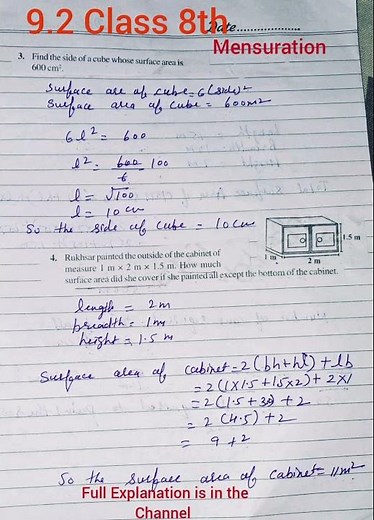 9.2 Class 8th
Date..................
Mensuration
3. Find the side of a cube whose surface area is
600 cm².
Surface are of cube = 6(side)²
Surface area of cube = 600m²
6l² = 600
l² = 600 100
6
l = √100
l = 10 cm
So the side of cube = 10 cm
1.5 m
1 m
2 m
4. Rukhsar painted the outside of the cabinet of
measure 1 m × 2 m × 1.5 m. How much
surface area did she cover if she painted all except the bottom of the cabinet.
length = 2m
breadth = 1m
height = 1.5 m
Surface area of cabinet = 2(bh+hl)+lb
= 2(1×1.5+1.5×2)+2×1
= 2(1.5+3)+2
= 2(4.5)+2
= 9+2
So the surface area of cabinet = 11m²
Full Explanation is in the
Channel